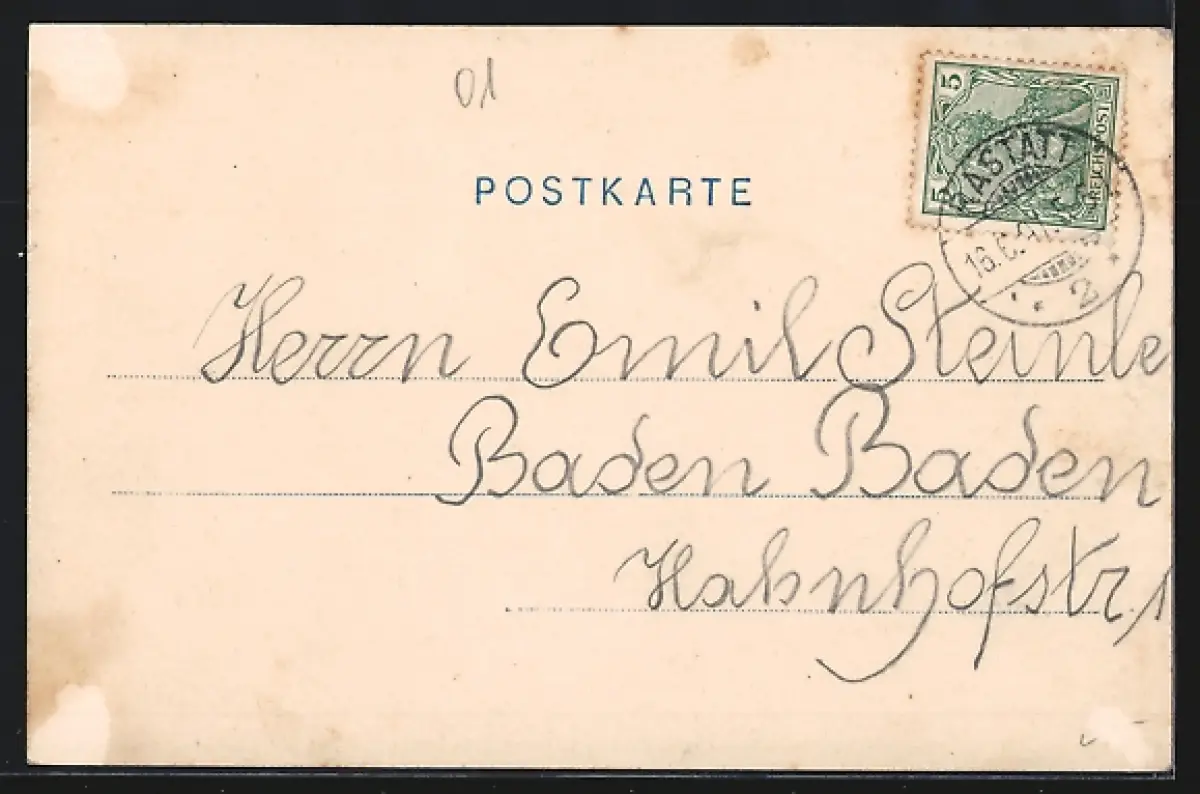 01
POSTKARTE
5
5
REICHSPOST
RASTATT
16.6.01.
2
Herrn Emil Steinle
Baden Baden
Hahnhofstr. 1